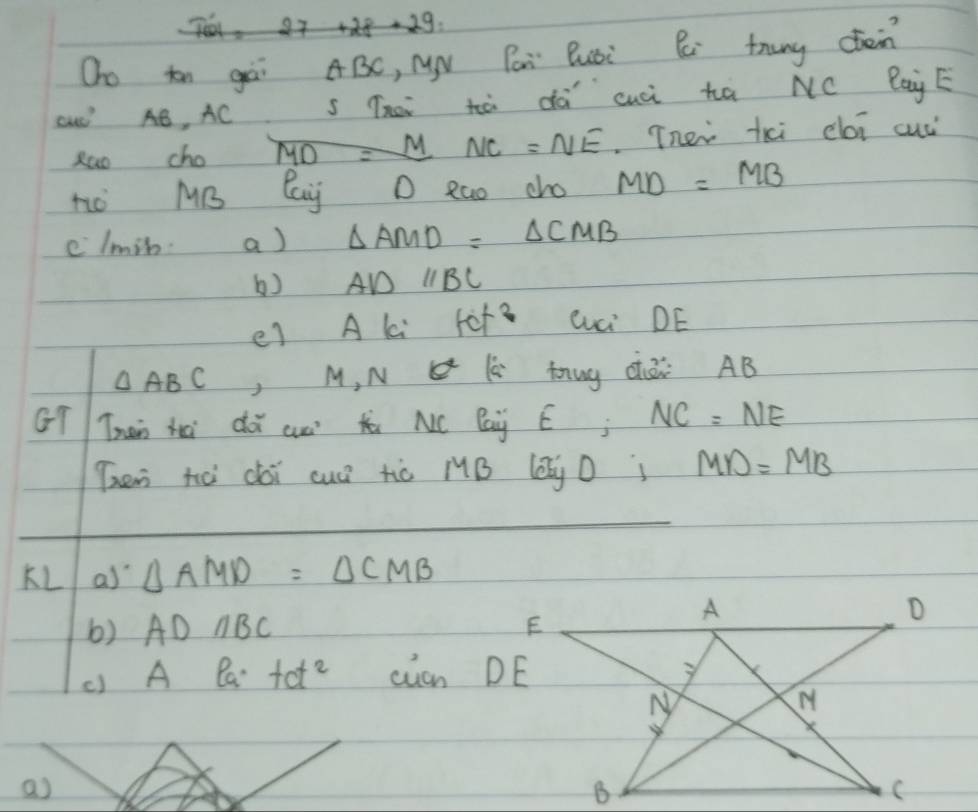 Tiết = 27 + 28 + 29.
Cho tam giác ABC, M,N lần lượt là trung điểm
của AB, AC. Trên tia đối của tia NC lấy E
sao cho MD = M NC = NE. Trên tia đối của
tia MB lấy D sao cho MD = MB
c/mih: a) ΔAMD = ΔCMB
b) AD // BC
c) A là tđ² của DE
ΔABC, M,N là trung điểm AB
GT Trên tia đối của tia NC lấy E ; NC = NE
Trên tia đối của tia MB lấy D ; MD = MB
KL a) ΔAMD = ΔCMB
b) AD // BC
c) A là tđ² của DE
E A D
N M
B C
a)